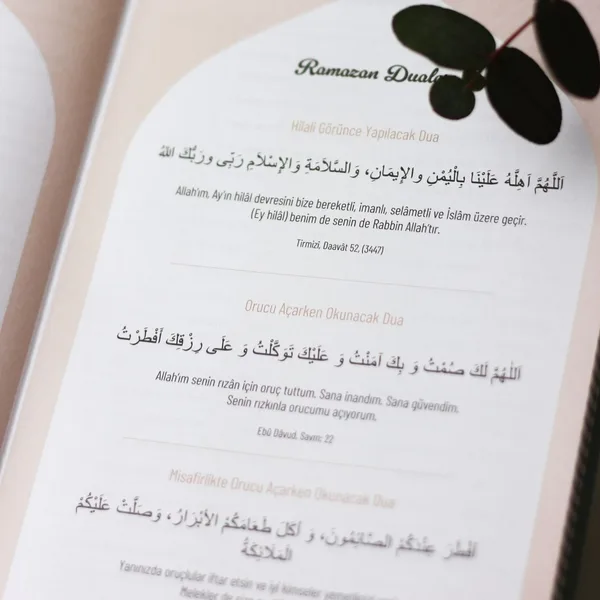 Ramazan
Hilali Görünce Yapılacak Dua
اَللّٰهُمَّ اَهِلَّهُ عَلَيْنَا بِالْيُمْنِ والإِيمَانِ، وَالسَّلَامَةِ وَالإِسْلَامِ رَبِّى ورَبُّكَ اللهُ
Allah'ım. Ay'ın hilâl devresini bize bereketli, imanlı, selâmetli ve İslâm üzere geçir.
(Ey hilâl) benim de senin de Rabbin Allah'tır.
Tirmizi, Daavât 52, (3447)
Orucu Açarken Okunacak Dua
اَللّٰهُمَّ لَكَ صُمْتُ وَ بِكَ آمَنْتُ وَ عَلَيْكَ تَوَكَّلْتُ وَ عَلَى رِزْقِكَ أَفْطَرْتُ
Allah'ım senin rızân için oruç tuttum. Sana inandım. Sana güvendim.
Senin rızkınla orucumu açıyorum.
Ebû Dâvud, Savm: 22
Misafirlikte Orucu Açarken Okunacak Dua
أَفْطَرَ عِنْدَكُمْ الصَّائِمُونَ، وَ أَكَلَ طَعَامَكُمْ الأَبْرَارُ، وَصَلَّتْ عَلَيْكُمْ
الْمَلَائِكَةُ
Yanınızda oruçlular iftar etsin ve iyi kimseler
Melekler de